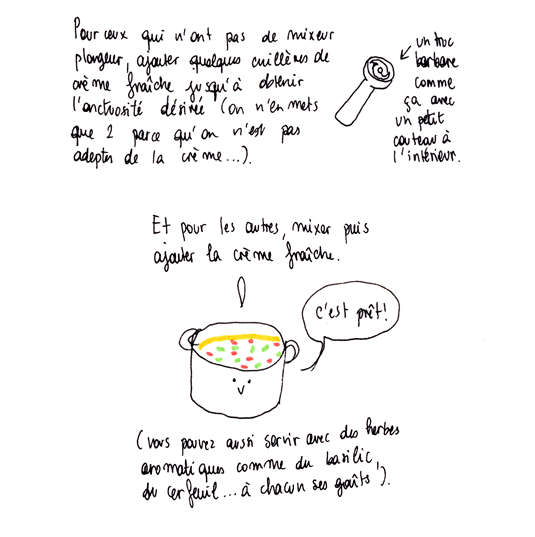 Pour ceux qui n'ont pas de mixeur
plongeur, ajouter quelques cuillères de
crème fraîche jusqu'à obtenir
l'onctuosité désirée (on n'en mets
que 2 parce qu'on n'est pas
adeptes de la crème...).
un truc
barbare
comme
ça avec
un petit
couteau à
l'intérieur.
Et pour les autres, mixer puis
ajouter la crème fraîche.
c'est prêt!
(vous pouvez aussi servir avec des herbes
aromatiques comme du basilic,
du cerfeuil... à chacun ses goûts).